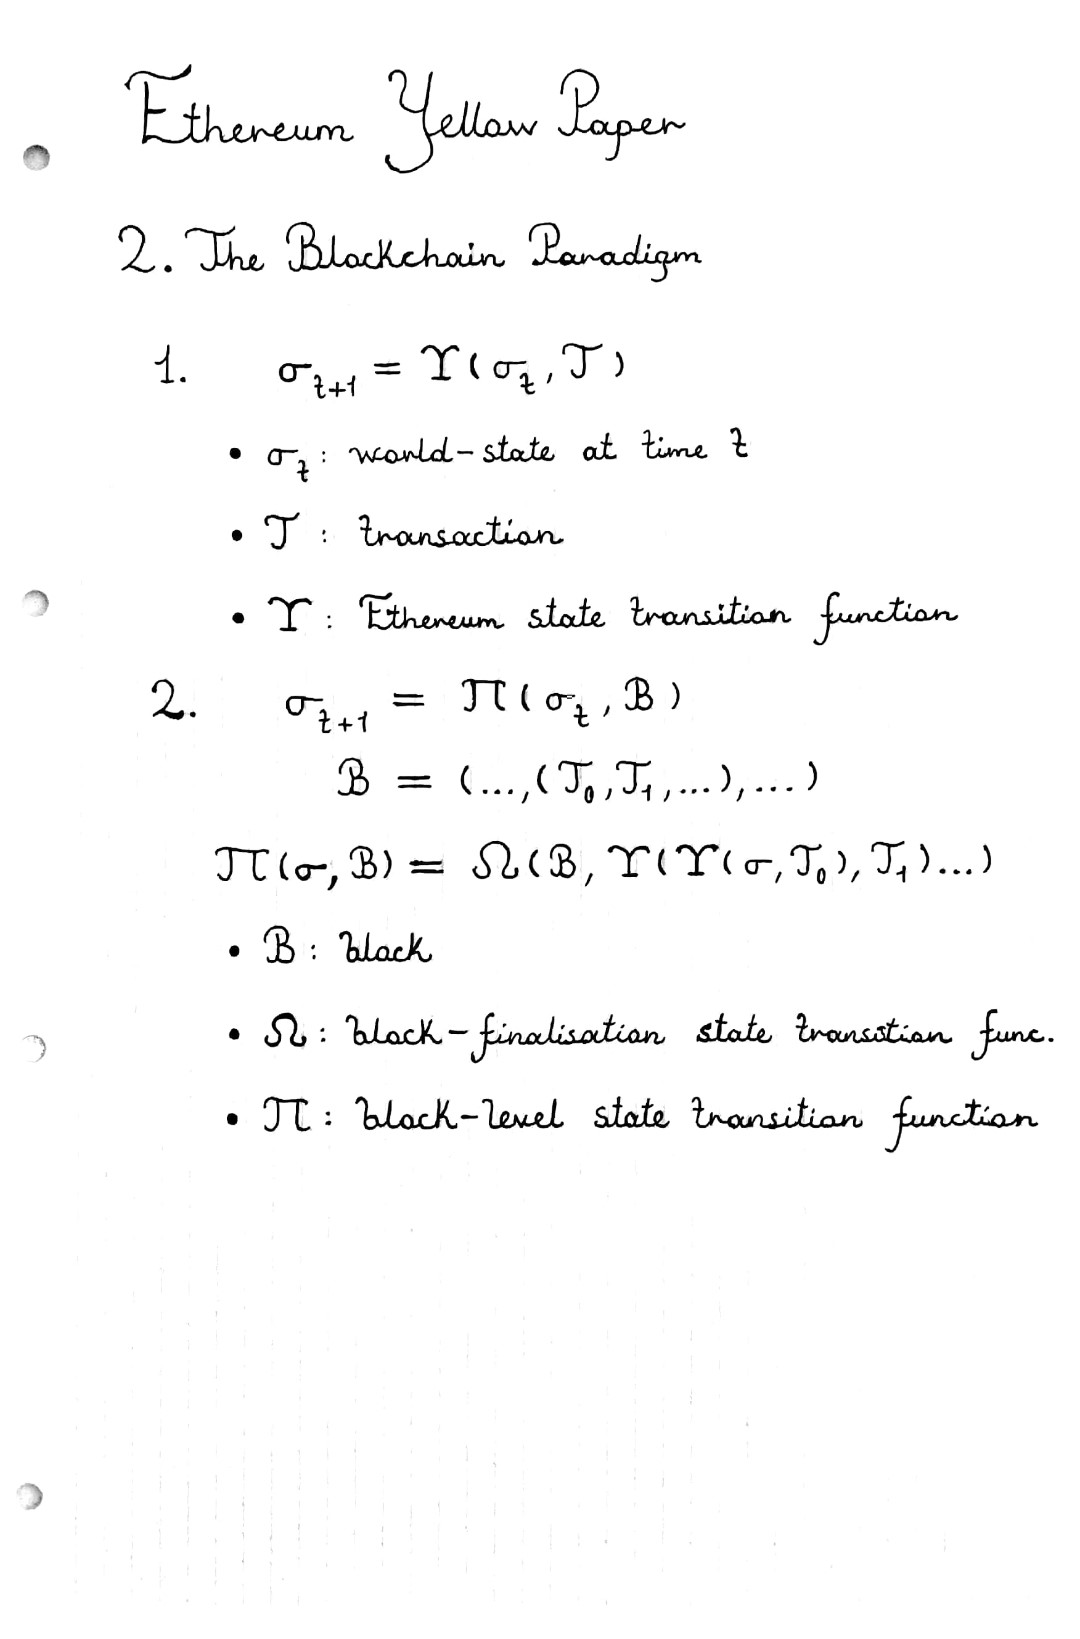 Ethereum Yellow Paper
2. The Blockchain Paradigm
1. σ_{t+1} = Υ(σ_t, T)
• σ_t: world-state at time t
• T: transaction
• Υ: Ethereum state transition function
2. σ_{t+1} = Π(σ_t, B)
B = (...,(T_0,T_1,...),...)
Π(σ, B) = Ω(B, Υ(Υ(σ,T_0),T_1)...)
• B: block
• Ω: block-finalisation state transition func.
• Π: block-level state transition function